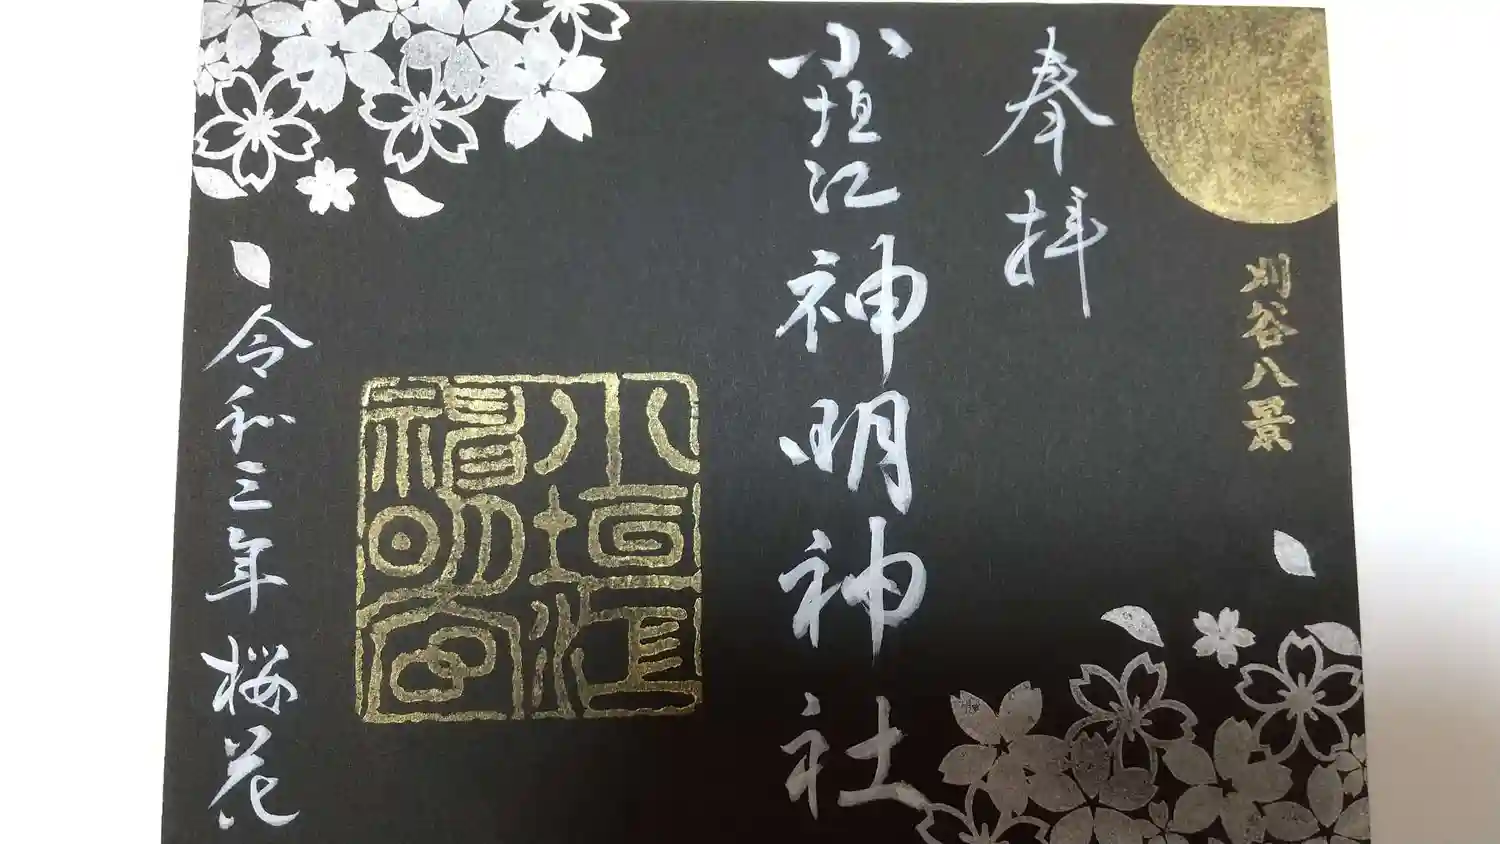 刈谷八景
奉拝
小垣江神明神社
小垣江
神明宮
令和三年 桜花